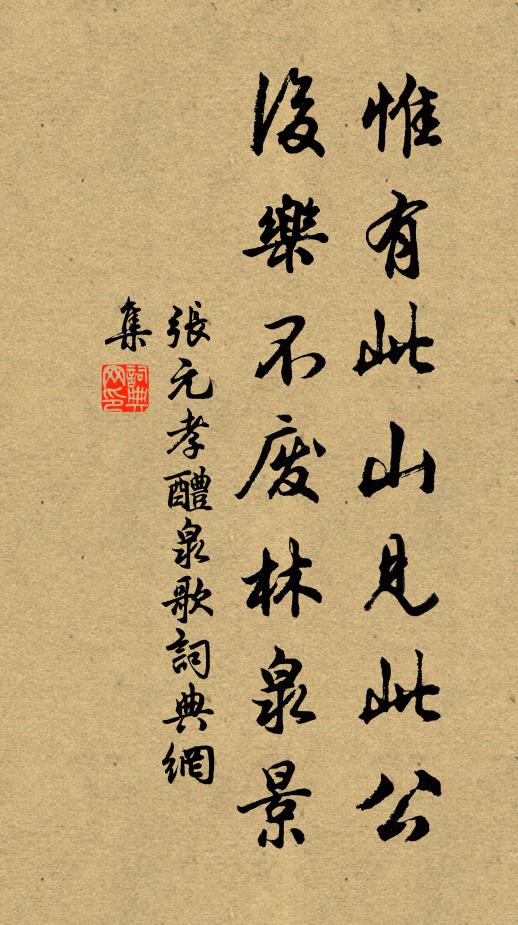 惟有此山見此公
後樂不废林泉景
張元孝醴泉歌詞典網
集
詞典
网印